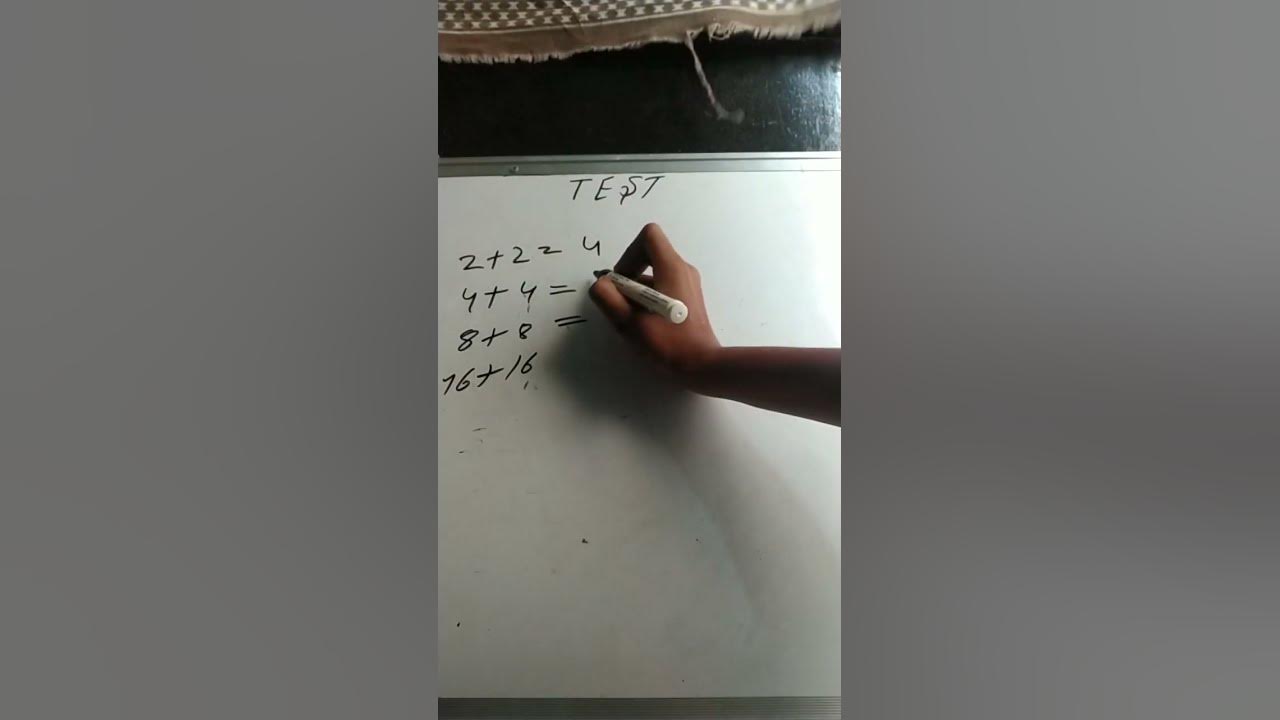 TEST
2+2= 4
4+4=
8+8 =
16+16